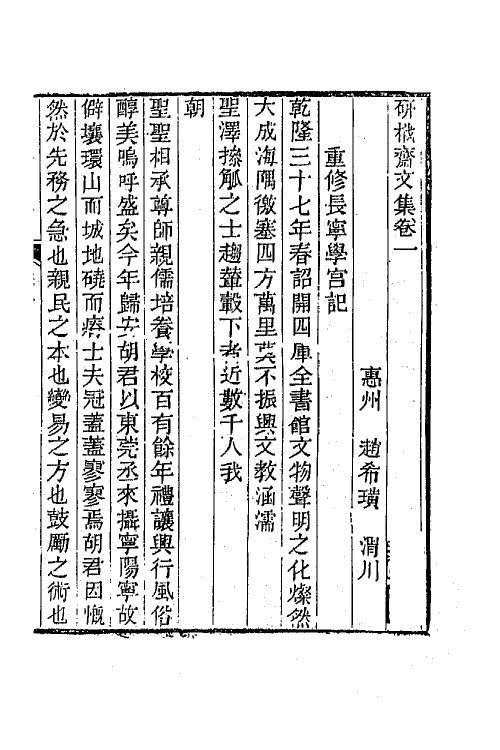 研栰齋文集卷一
惠州　趙希璜　渭川
重修長寧學宫記
乾隆三十七年春詔開四庫全書館文物聲明之化燦然
大成海隅徼塞四方萬里莫不振興文教涵濡
聖澤操觚之士趨輦轂下者近數千人我
朝
聖聖相承尊師親儒培養學校百有餘年禮讓興行風俗
醇美嗚呼盛矣今年歸安胡君以東莞丞來攝寧陽寧故
僻壤環山而城地磽而瘠士夫冠蓋蓋寥寥焉胡君因慨
然於先務之急也親民之本也變易之方也鼓厲之術也